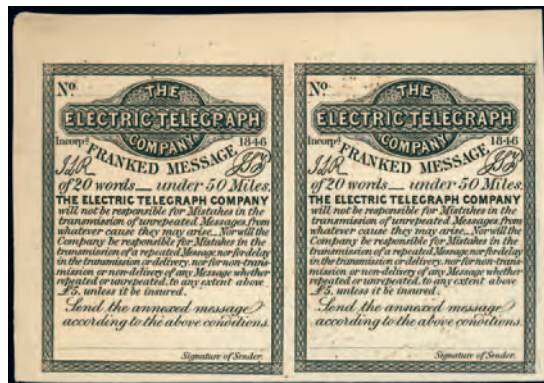 No.
THE
ELECTRIC TELEGRAPH
COMPANY
Incorpd. 1846
FRANKED MESSAGE
of 20 words__ under 50 Miles.
THE ELECTRIC TELEGRAPH COMPANY
will not be responsible for Mistakes in the
transmission of unrepeated Messages, from
whatever cause they may arise_ Nor will the
Company be responsible for Mistakes in the
transmission of a repeated Message, nor for delay
in the transmission or delivery, nor for non-trans-
mission or non-delivery of any Message whether
repeated or unrepeated, to any extent above
£5, unless it be insured.
Send the annexed message
according to the above conditions.
Signature of Sender.
No.
THE
ELECTRIC TELEGRAPH
COMPANY
Incorpd. 1846
FRANKED MESSAGE
of 20 words__ under 50 Miles.
THE ELECTRIC TELEGRAPH COMPANY
will not be responsible for Mistakes in the
transmission of unrepeated Messages, from
whatever cause they may arise_ Nor will the
Company be responsible for Mistakes in the
transmission of a repeated Message, nor for delay
in the transmission or delivery, nor for non-trans-
mission or non-delivery of any Message whether
repeated or unrepeated, to any extent above
£5, unless it be insured.
Send the annexed message
according to the above conditions.
Signature of Sender.